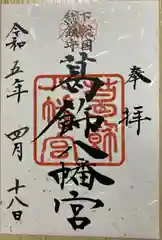 奉拝
下総国
総鎮守
葛飾八幡宮
令和五年
四月
十八日